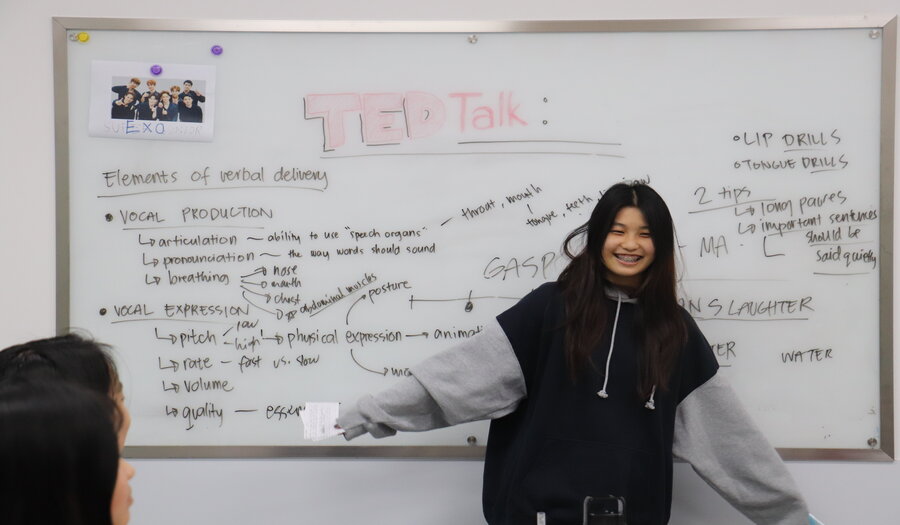 EXO
TED Talk :
Elements of verbal delivery
• VOCAL PRODUCTION
↳ articulation ~ ability to use "speech organs" — throat, mouth
tongue, teeth
↳ pronounciation ~ the way words should sound
↳ breathing → nose
→ mouth
→ chest
→ abdominal muscles
• VOCAL EXPRESSION
↳ pitch - low
- high → physical expression → animati
posture
↳ rate - fast vs. slow
↳ volume
↳ quality —
• LIP DRILLS
• TONGUE DRILLS
2 tips
↳ long pauses
↳ important sentences
should be
said quietly
GASP
MA
NSLAUGHTER
ER
WATER